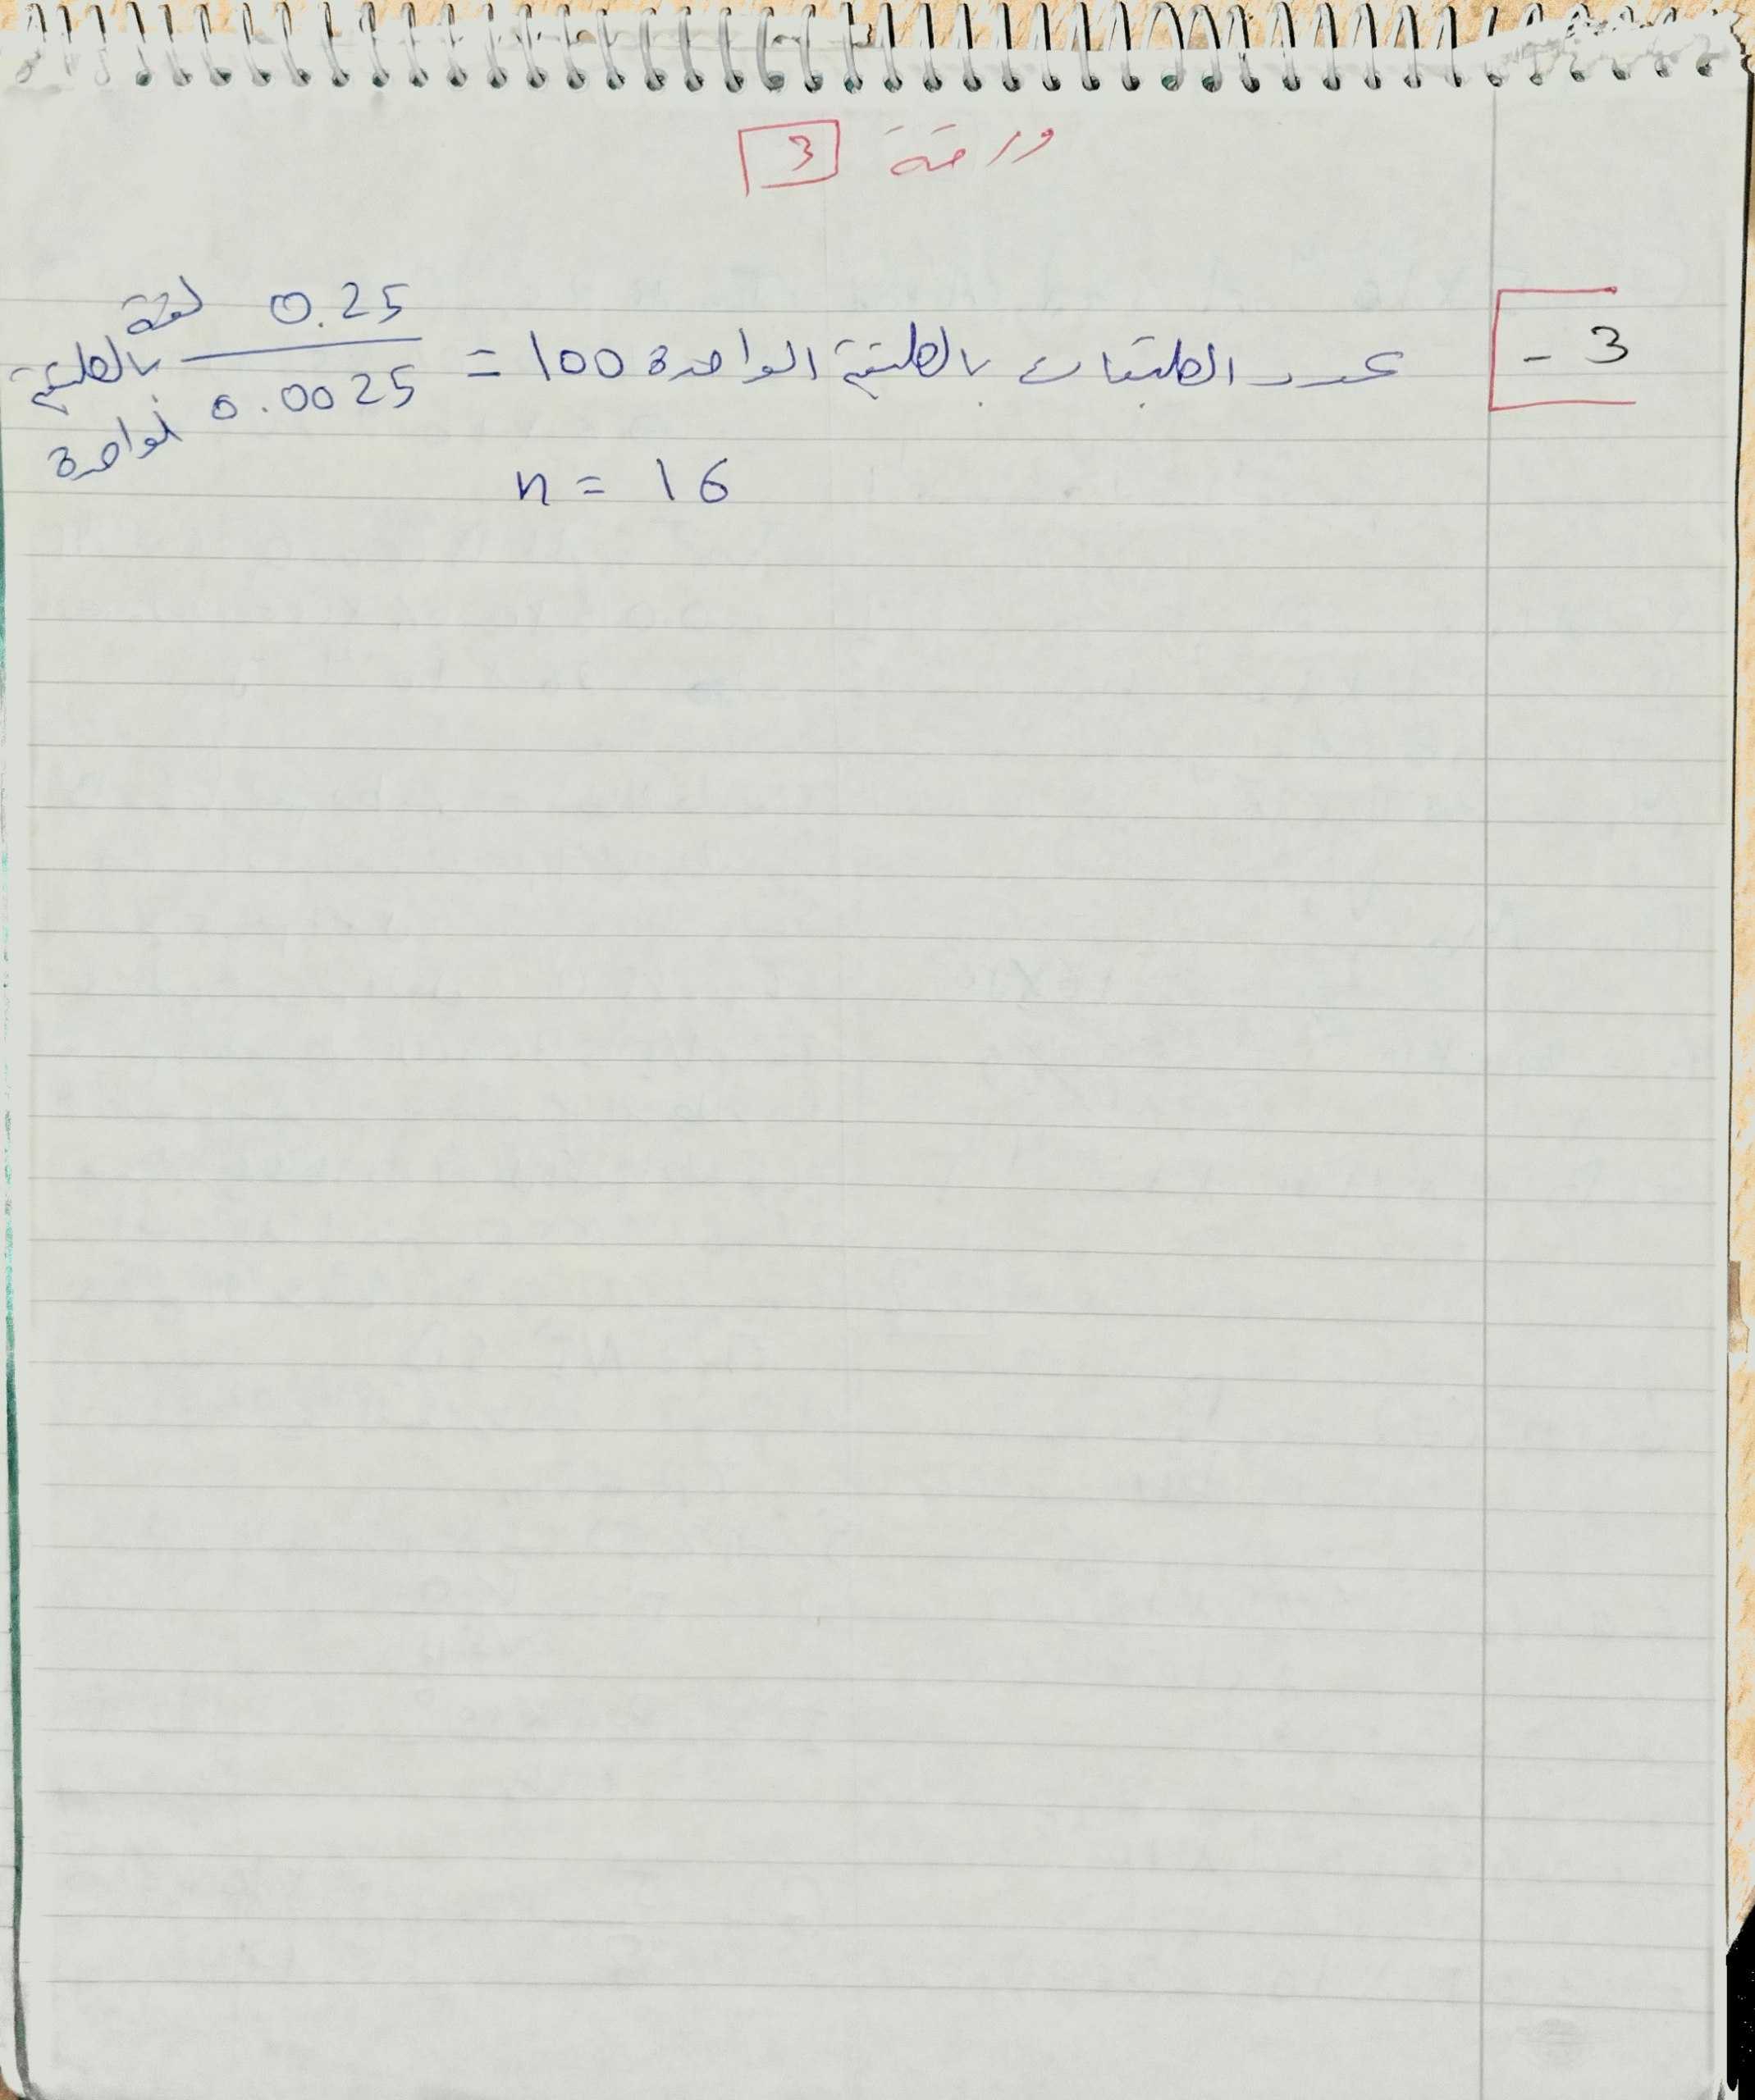 ورقة 3
3 - عدد الطبقات بالطبقة الواحدة 100 = 0.25 / 0.0025 لفة بالطبقة لواحدة
n = 16